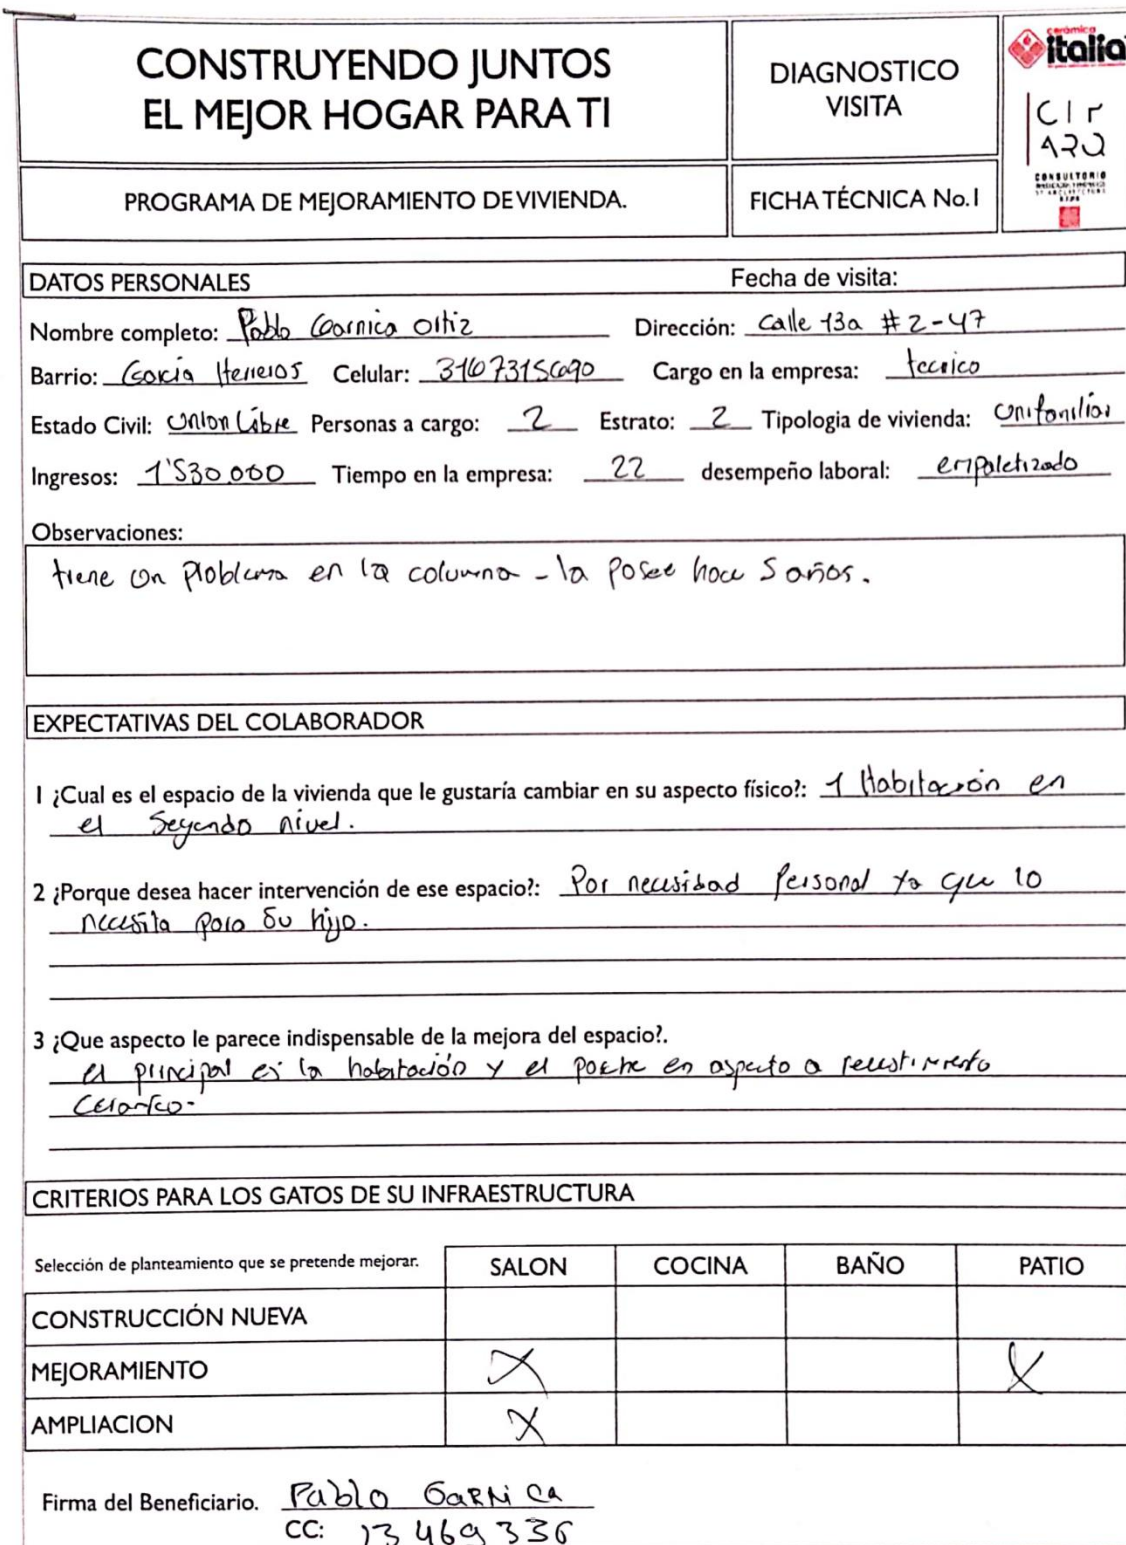 CONSTRUYENDO JUNTOS
EL MEJOR HOGAR PARA TI
DIAGNOSTICO
VISITA
cerámica
italia
CIr
ARQ
CONSULTORIO
PROGRAMA DE MEJORAMIENTO DE VIVIENDA.
FICHA TÉCNICA No. I
DATOS PERSONALES Fecha de visita:
Nombre completo: Pablo Garnica Ortiz Dirección: Calle 13a # 2-47
Barrio: Garcia Herreros Celular: Cargo en la empresa: tecnico
Estado Civil: Union Libre Personas a cargo: 2 Estrato: 2 Tipologia de vivienda: Unifamiliar
Ingresos: 1'530.000 Tiempo en la empresa: 22 desempeño laboral: empaletizado
Observaciones:
tiene un problema en la columna - la posee hace 5 años.
EXPECTATIVAS DEL COLABORADOR
I ¿Cual es el espacio de la vivienda que le gustaría cambiar en su aspecto físico?: 1 Habitación en
el Segundo nivel.
2 ¿Porque desea hacer intervención de ese espacio?: Por necesidad Personal ya que lo
necesita para su hijo.
3 ¿Que aspecto le parece indispensable de la mejora del espacio?.
el principal es la habitación y el porche en aspecto a revestimiento
Ceramico.
CRITERIOS PARA LOS GATOS DE SU INFRAESTRUCTURA
Selección de planteamiento que se pretende mejorar. SALON COCINA BAÑO PATIO
CONSTRUCCIÓN NUEVA
MEJORAMIENTO X X
AMPLIACION X
Firma del Beneficiario. Pablo GARNiCa
CC: 13 469 336